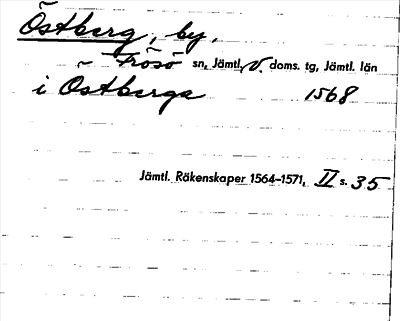 Östberg, by,
Frösö sn, Jämtl. v. doms. tg, Jämtl. län
i Östberga 1568
Jämtl. Räkenskaper 1564–1571, II s. 35